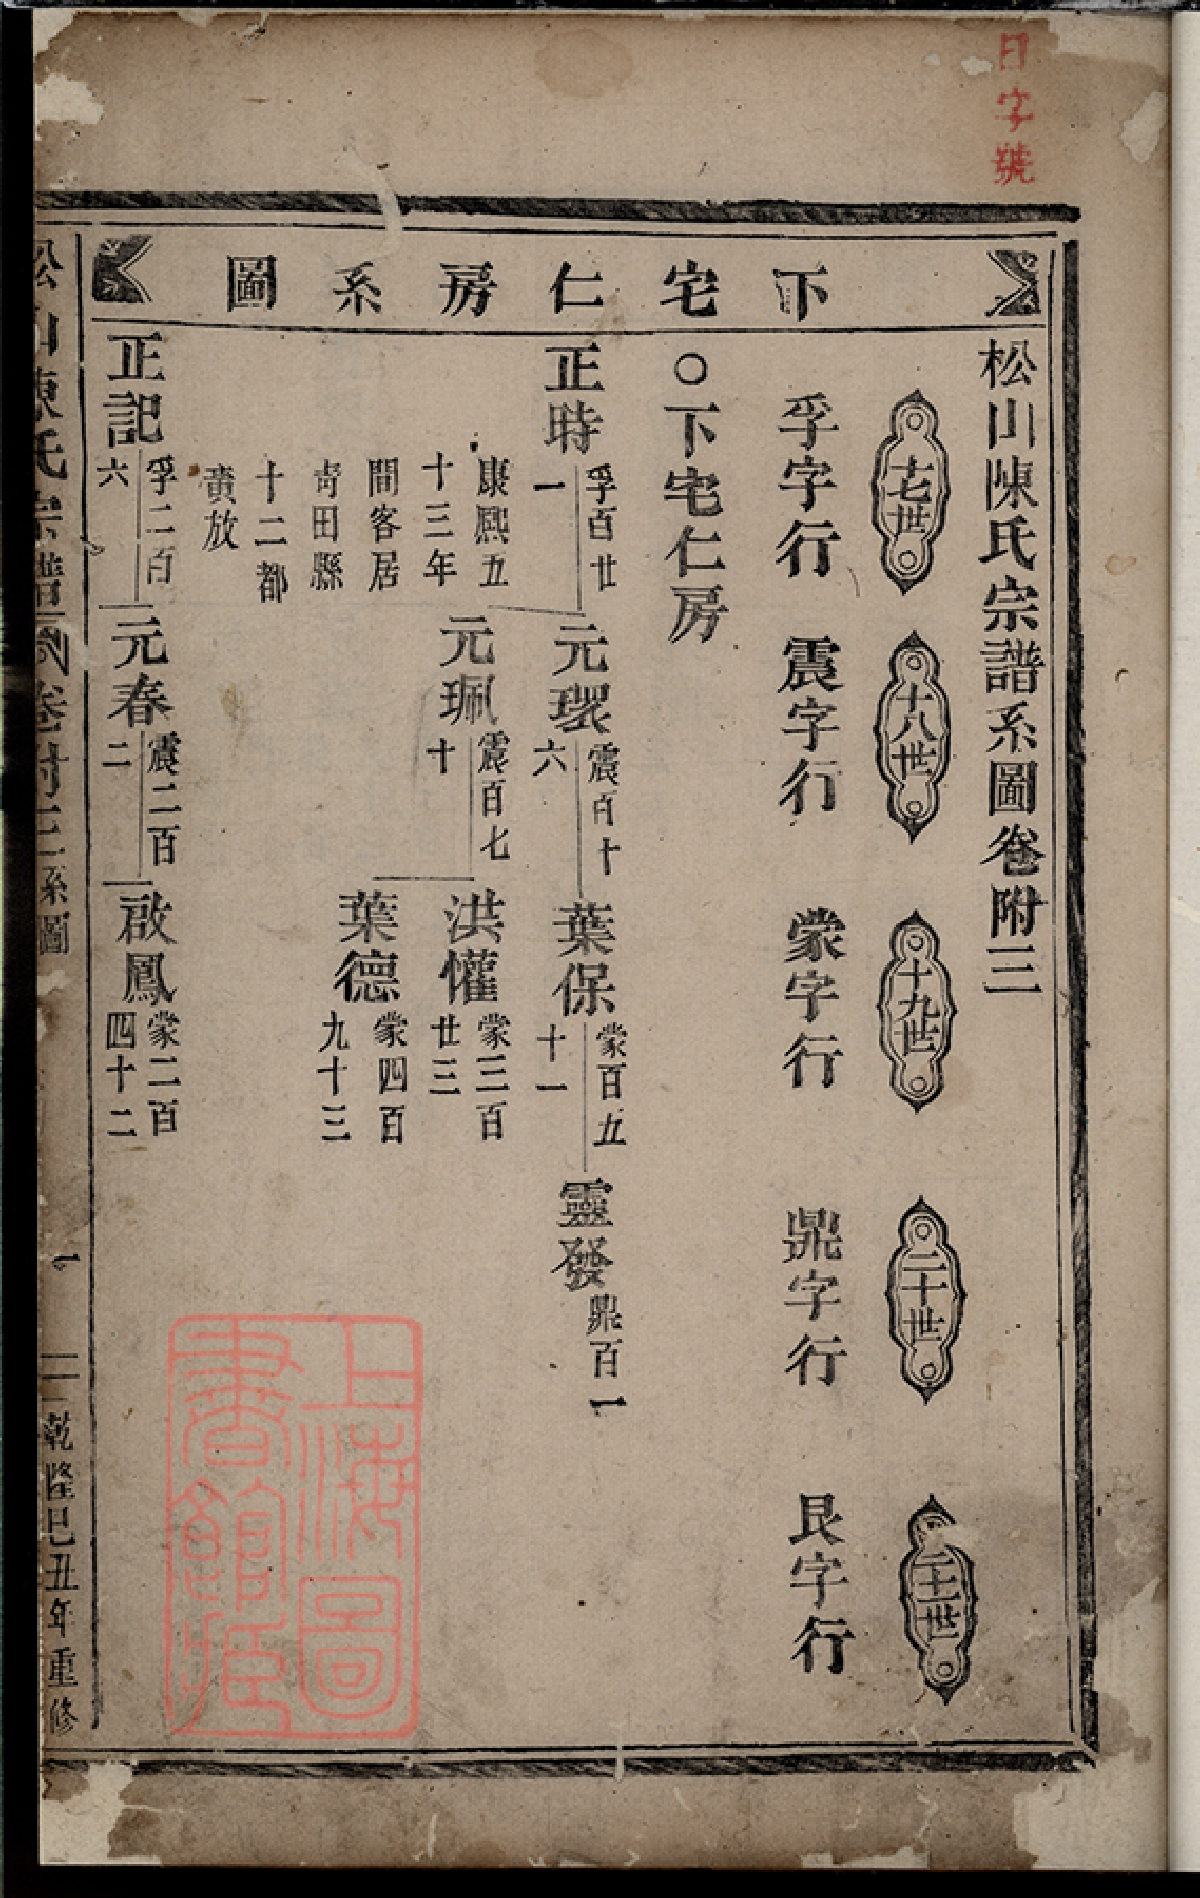 日字號
下宅仁房系圖
松山陳氏宗譜系圖卷附三
十七世
十八世
十九世
二十世
二十一世
孚字行
震字行
蒙字行
鼎字行
艮字行
○下宅仁房
正時
孚百廿
一
康熙五
十三年
間客居
靑田縣
十二都
黄放
元環
震百十
六
葉保
蒙百五
十一
靈發
鼎百一
元珮
震百七
十
洪懽
蒙三百
廿三
葉德
蒙四百
九十三
正記
孚二百
六
元春
震二百
二
啟鳳
蒙二百
四十二
松山陳氏宗譜
卷附三系圖
一
乾隆己丑年重修
上海圖
書館藏